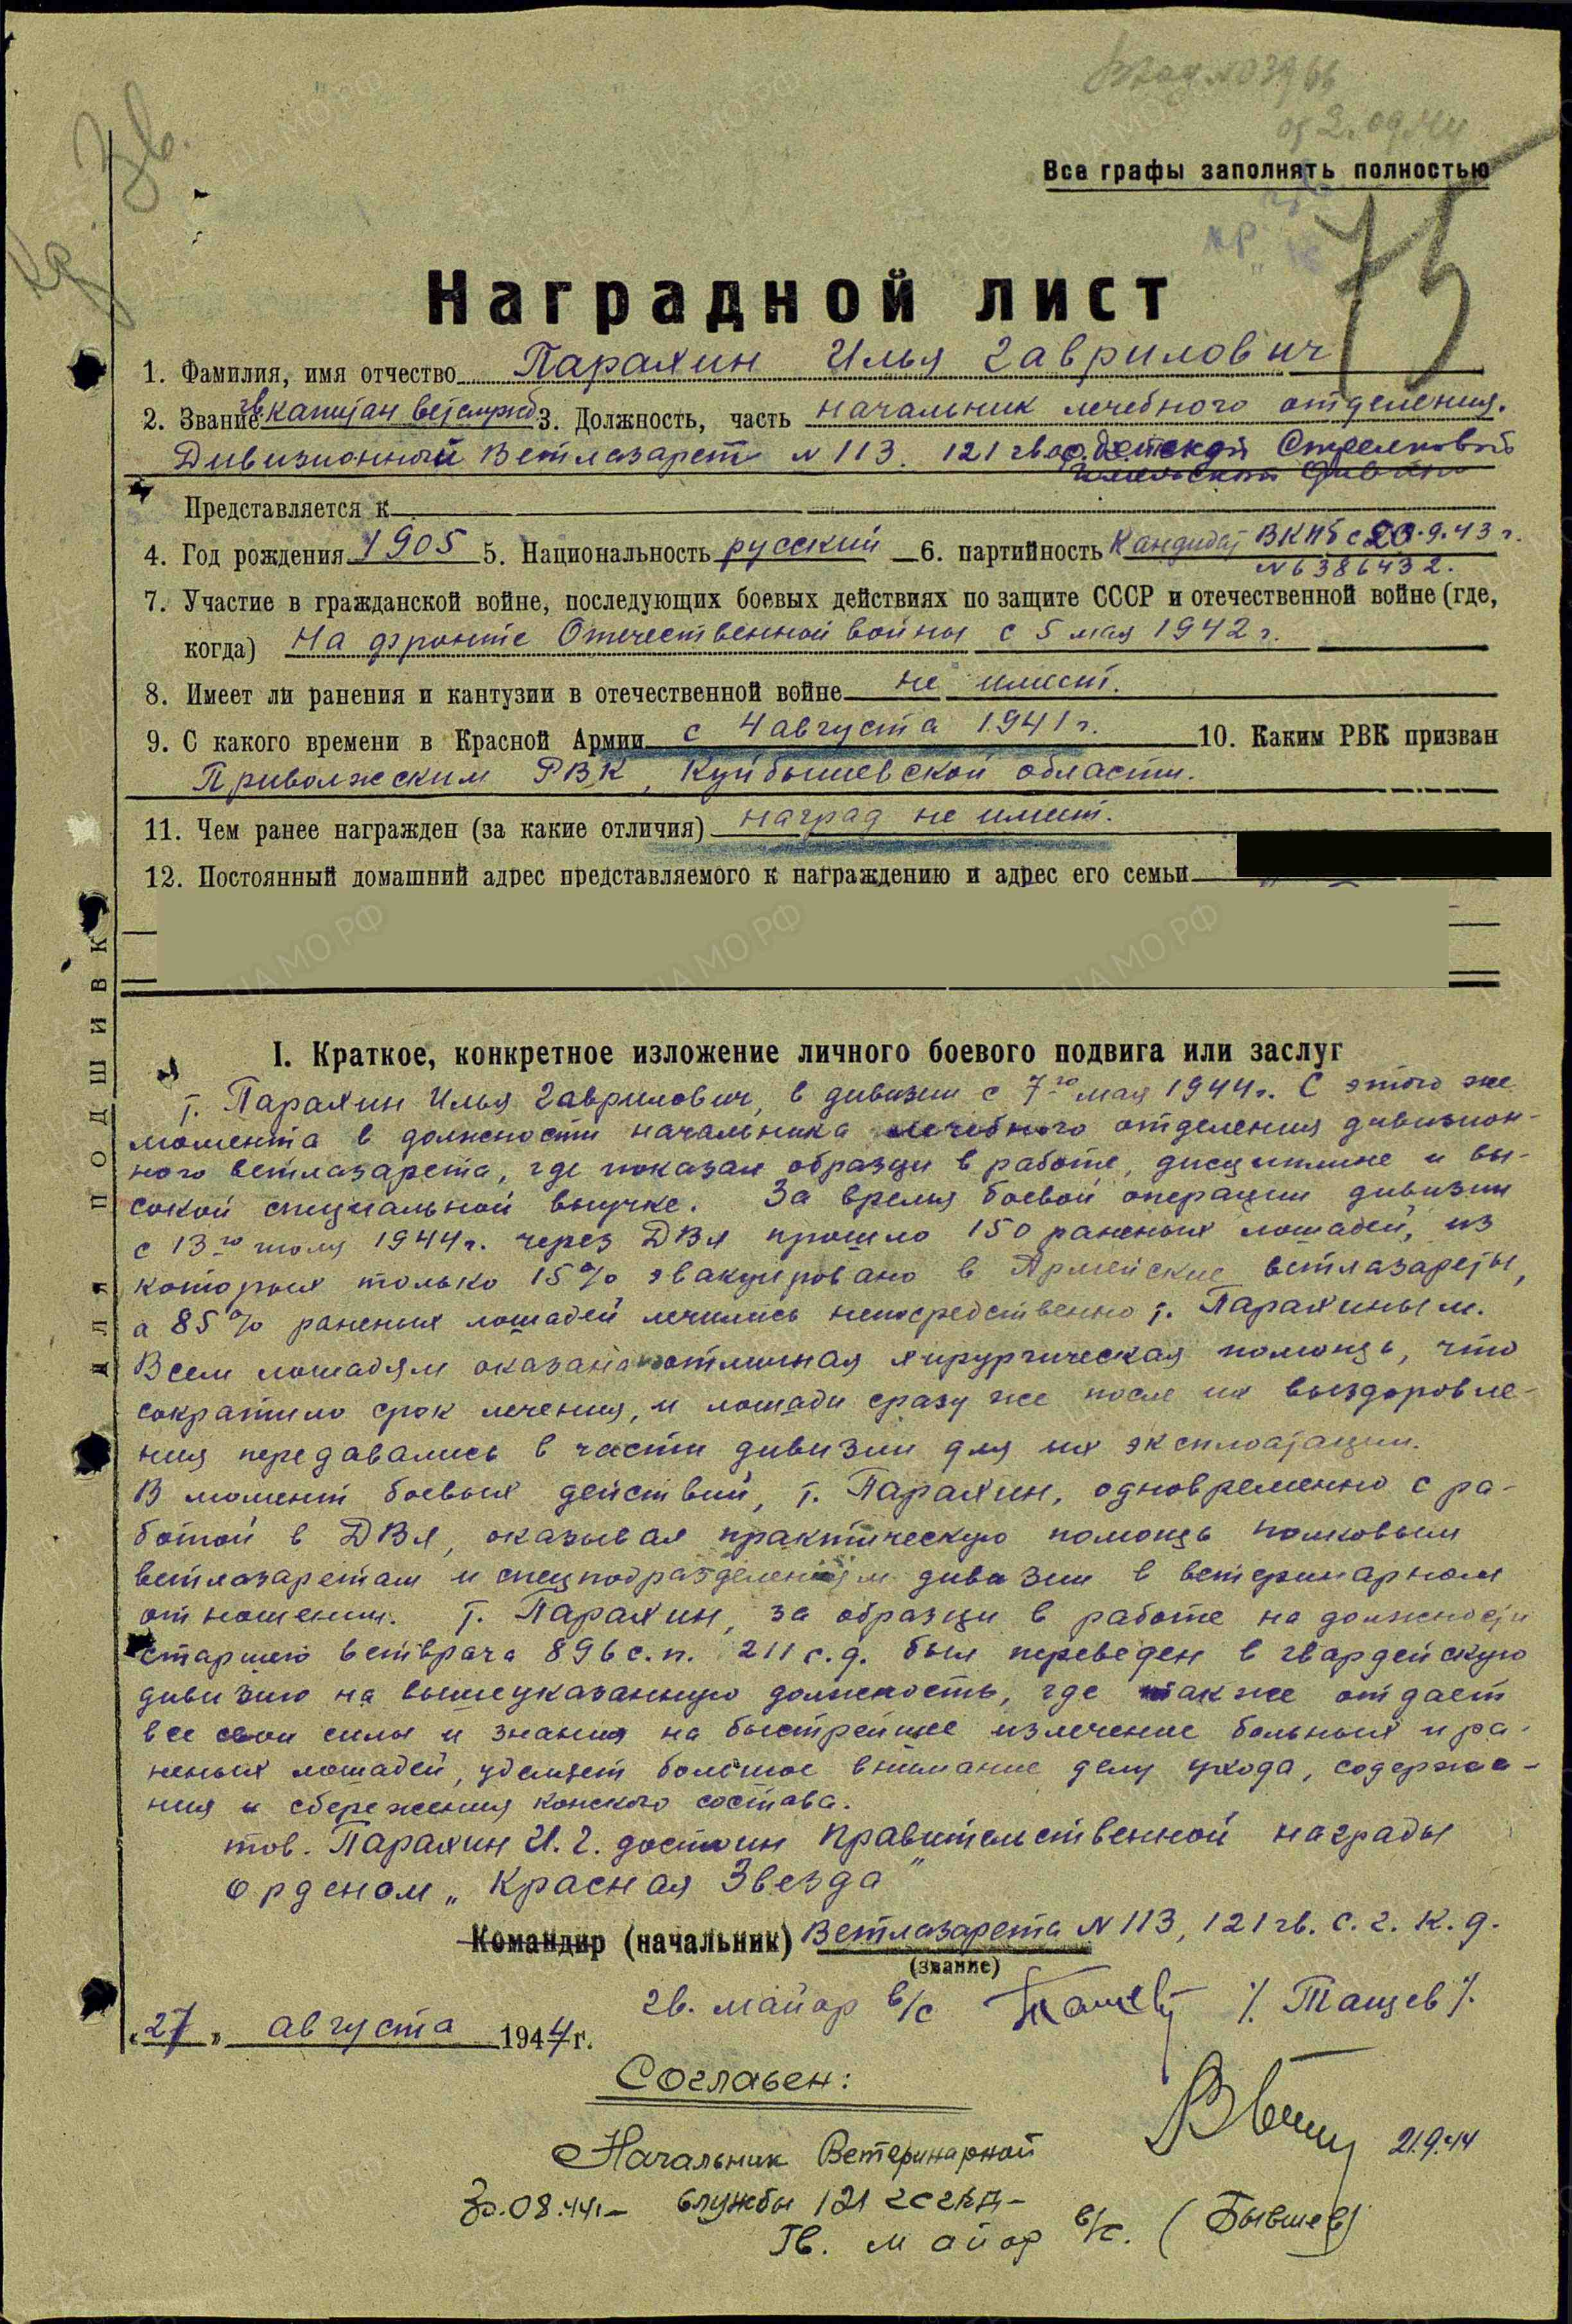 Кр. Зв.
Вход. №03966
от 2.09.44
Все графы заполнять полностью
75
Наградной лист
1. Фамилия, имя отчество Парахин Илья Гаврилович
2. Звание гв. капитан ветслужб 3. Должность, часть начальник лечебного отделения.
Дивизионный Ветлазарет №113. 121 гвардейской Стрелковой
Гомельской дивизии
Представляется к
4. Год рождения 1905 5. Национальность русский 6. партийность Кандидат ВКПб с 20.9.43 г.
№6386432.
7. Участие в гражданской войне, последующих боевых действиях по защите СССР и отечественной войне (где,
когда) На фронте Отечественной войны с 5 мая 1942 г.
8. Имеет ли ранения и кантузии в отечественной войне не имеет.
9. С какого времени в Красной Армии с 4 августа 1941 г. 10. Каким РВК призван
Приволжским РВК, Куйбышевской области.
11. Чем ранее награжден (за какие отличия) наград не имеет.
12. Постоянный домашний адрес представляемого к награждению и адрес его семьи
для подшивк
I. Краткое, конкретное изложение личного боевого подвига или заслуг
т. Парахин Илья Гаврилович, в дивизии с 7го мая 1944г. С этого же
момента в должности начальника лечебного отделения дивизион-
ного ветлазарета, где показал образцы в работе, дисциплине и вы-
сокой специальной выучке. За время боевой операции дивизии
с 13го июля 1944г. через ДВЛ прошло 150 раненых лошадей, из
которых только 15% эвакуировано в Армейские ветлазареты,
а 85% раненых лошадей лечились непосредственно т. Парахиным.
Всем лошадям оказана отличная хирургическая помощь, что
сократило срок лечения, и лошади сразу же после их выздоровле-
ния передавались в части дивизии для их эксплоатации.
В момент боевых действий, т. Парахин, одновременно с ра-
ботой в ДВЛ, оказывал практическую помощь полковым
ветлазаретам и спецподразделениям дивизии в ветеринарном
отношении. т. Парахин, за образцы в работе на должности
старшего ветврача 896 с.п. 211 с.д. был переведен в гвардейскую
дивизию на вышеуказанную должность, где также отдает
все свои силы и знания на быстрейшее излечение больных и ра-
неных лошадей, уделяет большое внимание делу ухода, содержа-
ния и сбережения конского состава.
тов. Парахин И.Г. достоин Правительственной награды
орденом „Красная Звезда"
Командир (начальник) Ветлазарета №113, 121 гв. с. г. К. д.
(звание)
гв. майор в/с /Тащев/.
„27" августа 1944 г.
Согласен:
21.9.44
Начальник Ветеринарной
30.08.44г- службы 121 гсгкд-
Гв. майор в/с. (Бывшев)
ЦАМО РФ